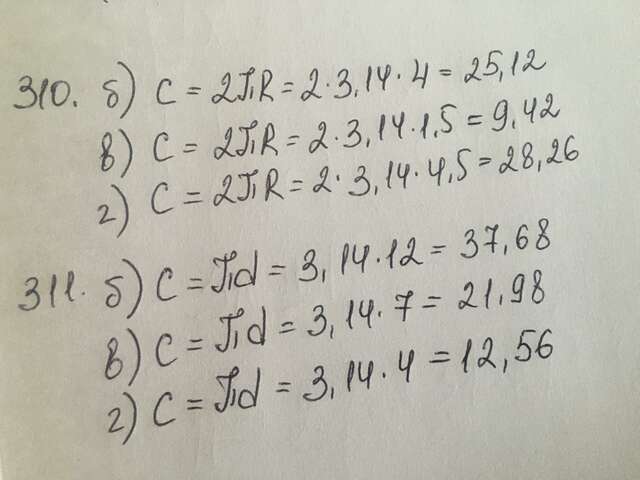 310. б) C = 2πR = 2·3,14·4 = 25,12
в) C = 2πR = 2·3,14·1,5 = 9,42
г) C = 2πR = 2·3,14·4,5 = 28,26
311. б) C = πd = 3,14·12 = 37,68
в) C = πd = 3,14·7 = 21,98
г) C = πd = 3,14·4 = 12,56